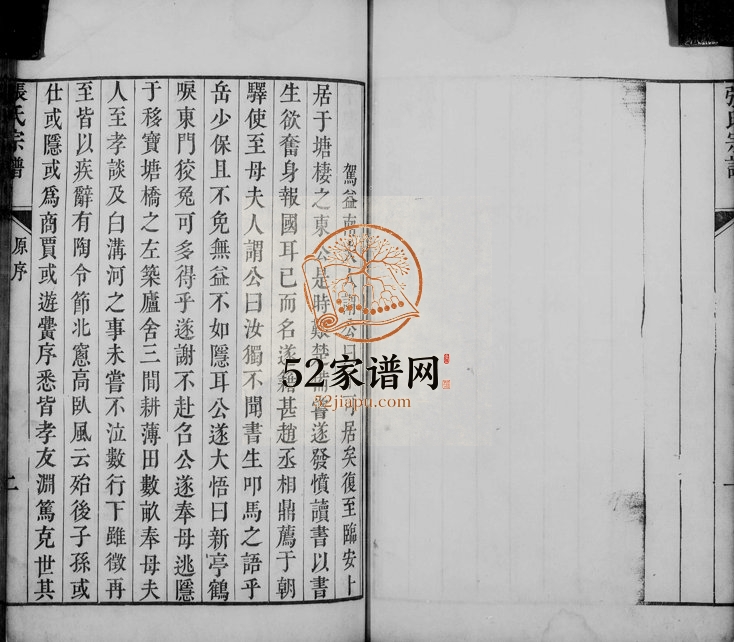 張氏宗譜
駕益南夫人謂公可居矣復至臨安卜
居于塘棲之東公是時艱楚備嘗遂發憤讀書以書
生欲奮身報國耳已而名遂籍甚趙丞相鼎薦于朝
驛使至母夫人謂公曰汝獨不聞書生叩馬之語乎
岳少保且不免無益不如隱耳公遂大悟曰新亭鶴
唳東門狡兔可多得乎遂謝不赴召公遂奉母逃隱
于移寶塘橋之左築廬舍三間耕薄田數畝奉母夫
人至孝談及白溝河之事未嘗不泣數行下雖徵再
至皆以疾辭有陶令節北窻高臥風云殆後子孫或
仕或隱或爲商賈或遊黌序悉皆孝友淵篤克世其
張氏宗譜
原序
二
52家谱网
52jiapu.com